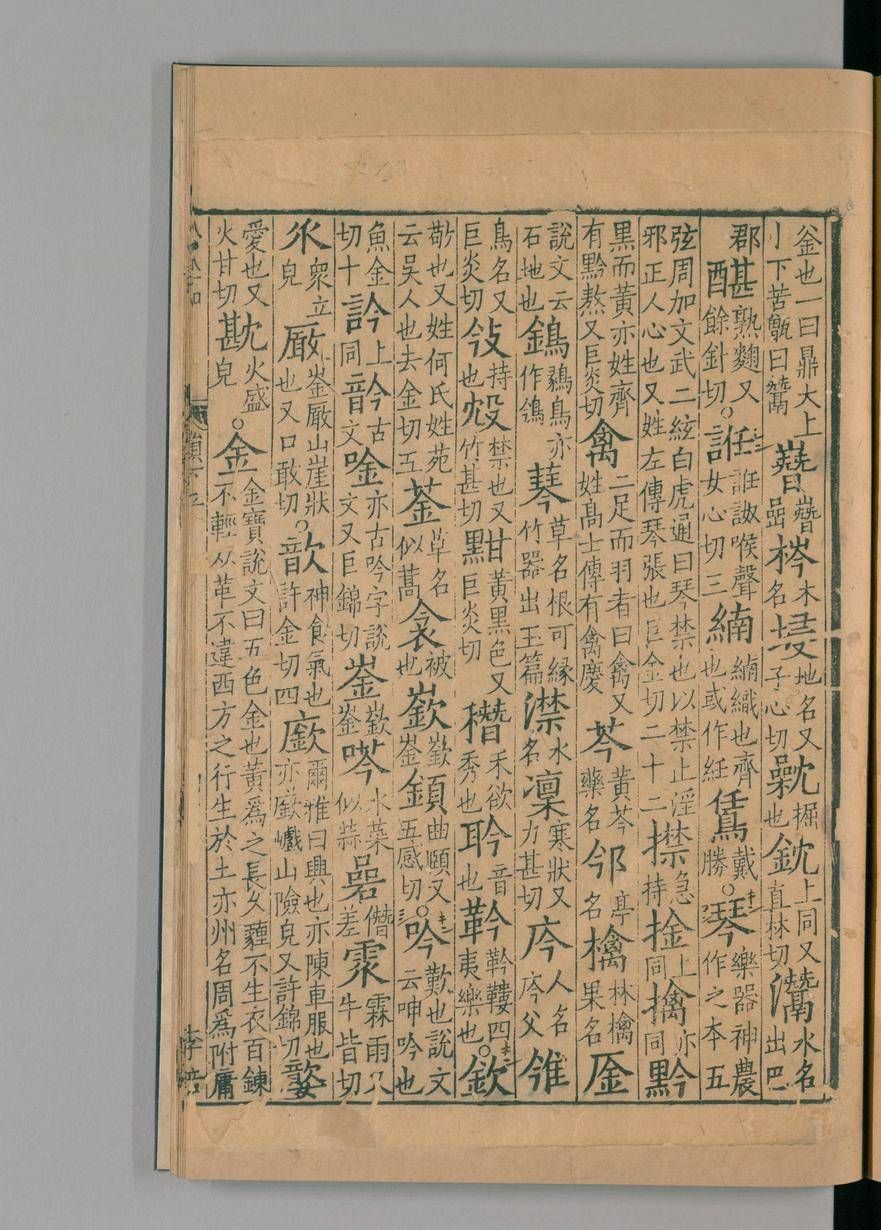 釜也一曰鼎大上小下若甑曰鬵嶜嶜嵒梣木名埐地名又子心切掘也鈂上同又直林切灊水名出巴
郡熟麴又餘針切。諔喉聲女心切三織也或作絍鵀戴勝。琴樂器神農作之本五
弦周加文武二絃白虎通曰琴禁也以禁止淫邪正人心也又姓左傳琴張也巨金切二十二㩒急持捦上同擒亦同黔
黑而黃亦姓齊有黔熬又巨炎切禽二足而羽者曰禽又姓高士傳有禽慶芩黃芩藥名亭名檎林檎果名
說文云石地也鵭鶼鳥亦作鳹草名根可緣竹器出玉篇澿水名凜寒狀又力甚切庈人名庈父雂
鳥名又巨炎切㪁持也禁也又竹甚切黚黃黑色又巨炎切禾欲秀也聆音也靲靲鞻四夷樂也。欽
敬也又姓何氏姓苑云吳人也去金切五菳草名似蒿衾被也嶔嶔崟顉曲頤又五感切。吟歎也說文云呻吟也
魚金切十訡上同䪩古文唫亦古吟字說文又巨錦切崟嶔崟水菜似蒜碞僭差霖雨又牛皆切
乑衆立皃厰崟厰山崖狀也又口敢切。歆神食氣也許金切四廞爾雅曰興也亦陳車服也亦廞巇山險皃又許錦切
愛也又火甘切火盛皃。金金寶說文曰五色金也黃爲之長久薶不生衣百鍊不輕从革不違西方之行生於土亦州名周爲附庸